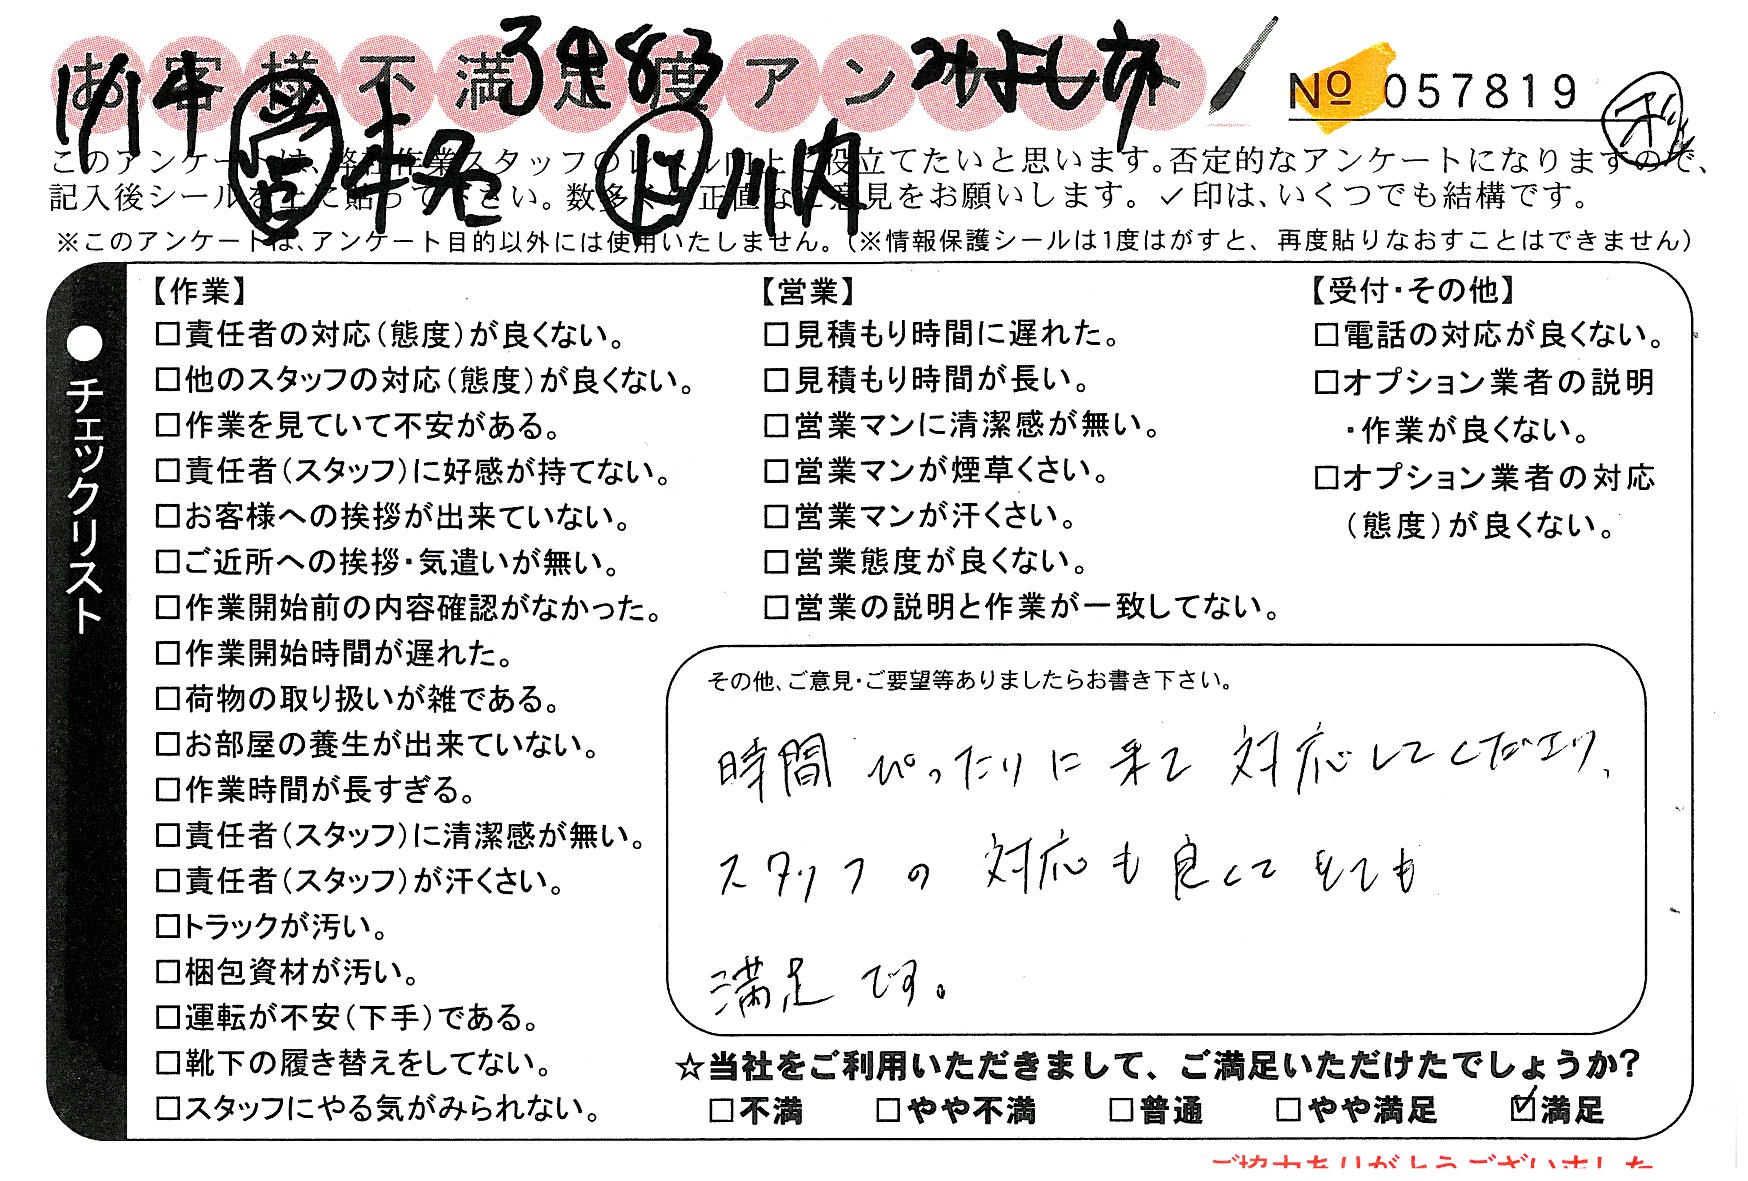 お客様不満足度アンケート
みよし市
No 057819
1/14
このアンケートは、弊社作業スタッフのレベル向上に役立てたいと思います。否定的なアンケートになりますので、
川内
記入後シールを上に貼って下さい。数多くの正直なご意見をお願いします。✓印は、いくつでも結構です。
※このアンケートは、アンケート目的以外には使用いたしません。(※情報保護シールは1度はがすと、再度貼りなおすことはできません)
●チェックリスト
【作業】
□責任者の対応(態度)が良くない。
□他のスタッフの対応(態度)が良くない。
□作業を見ていて不安がある。
□責任者(スタッフ)に好感が持てない。
□お客様への挨拶が出来ていない。
□ご近所への挨拶・気遣いが無い。
□作業開始前の内容確認がなかった。
□作業開始時間が遅れた。
□荷物の取り扱いが雑である。
□お部屋の養生が出来ていない。
□作業時間が長すぎる。
□責任者(スタッフ)に清潔感が無い。
□責任者(スタッフ)が汗くさい。
□トラックが汚い。
□梱包資材が汚い。
□運転が不安(下手)である。
□靴下の履き替えをしてない。
□スタッフにやる気がみられない。
【営業】
□見積もり時間に遅れた。
□見積もり時間が長い。
□営業マンに清潔感が無い。
□営業マンが煙草くさい。
□営業マンが汗くさい。
□営業態度が良くない。
□営業の説明と作業が一致してない。
【受付・その他】
□電話の対応が良くない。
□オプション業者の説明
・作業が良くない。
□オプション業者の対応
(態度)が良くない。
その他、ご意見・ご要望等ありましたらお書き下さい。
時間ぴったりに来て対応してくださり、
スタッフの対応も良くてとても
満足です。
☆当社をご利用いただきまして、ご満足いただけたでしょうか?
□不満 □やや不満 □普通 □やや満足 ☑満足
ご協力ありがとうございました